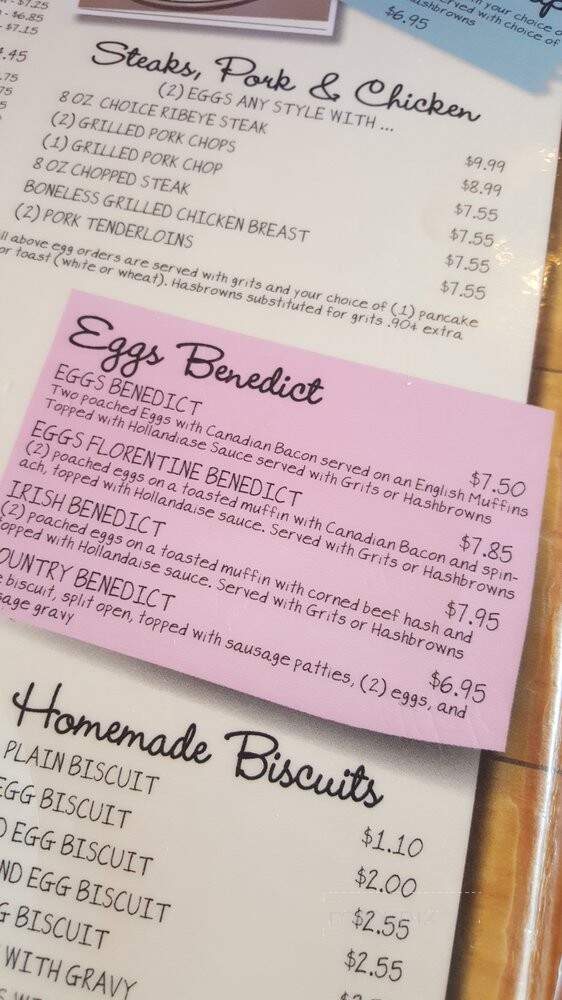 $7.25
- $6.85
- $7.15
.45
.75
75
5
in your choice o
served with choice of
hashbrowns
$6.95
Steaks, Pork & Chicken
(2) EGGS ANY STYLE WITH ...
8 OZ CHOICE RIBEYE STEAK $9.99
(2) GRILLED PORK CHOPS $8.99
(1) GRILLED PORK CHOP $7.55
8 OZ CHOPPED STEAK $7.55
BONELESS GRILLED CHICKEN BREAST $7.55
(2) PORK TENDERLOINS $7.55
ll above egg orders are served with grits and your choice of (1) pancake
or toast (white or wheat). Hasbrowns substituted for grits .90¢ extra
Eggs Benedict
EGGS BENEDICT $7.50
Two poached Eggs with Canadian Bacon served on an English Muffins
Topped with Hollandiase Sauce served with Grits or Hashbrowns
EGGS FLORENTINE BENEDICT $7.85
(2) poached eggs on a toasted muffin with Canadian Bacon and spin-
ach, topped with Hollandaise sauce. Served with Grits or Hashbrowns
IRISH BENEDICT $7.95
(2) poached eggs on a toasted muffin with corned beef hash and
topped with Hollandaise sauce. Served with Grits or Hashbrowns
OUNTRY BENEDICT $6.95
e biscuit, split open, topped with sausage patties, (2) eggs, and
sage gravy
Homemade Biscuits
PLAIN BISCUIT $1.10
EGG BISCUIT $2.00
D EGG BISCUIT $2.55
ND EGG BISCUIT $2.55
G BISCUIT
WITH GRAVY